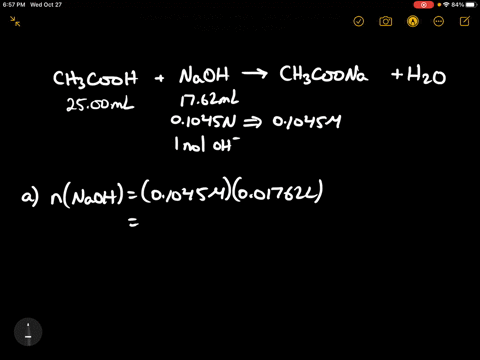 6:57 PM Wed Oct 27
84%
CH3COOH + NaOH → CH3COONa + H2O
25.00mL 17.62mL
0.1045N ⇒ 0.1045M
1 mol OH⁻
a) n(NaOH) = (0.1045M)(0.01762L)
=